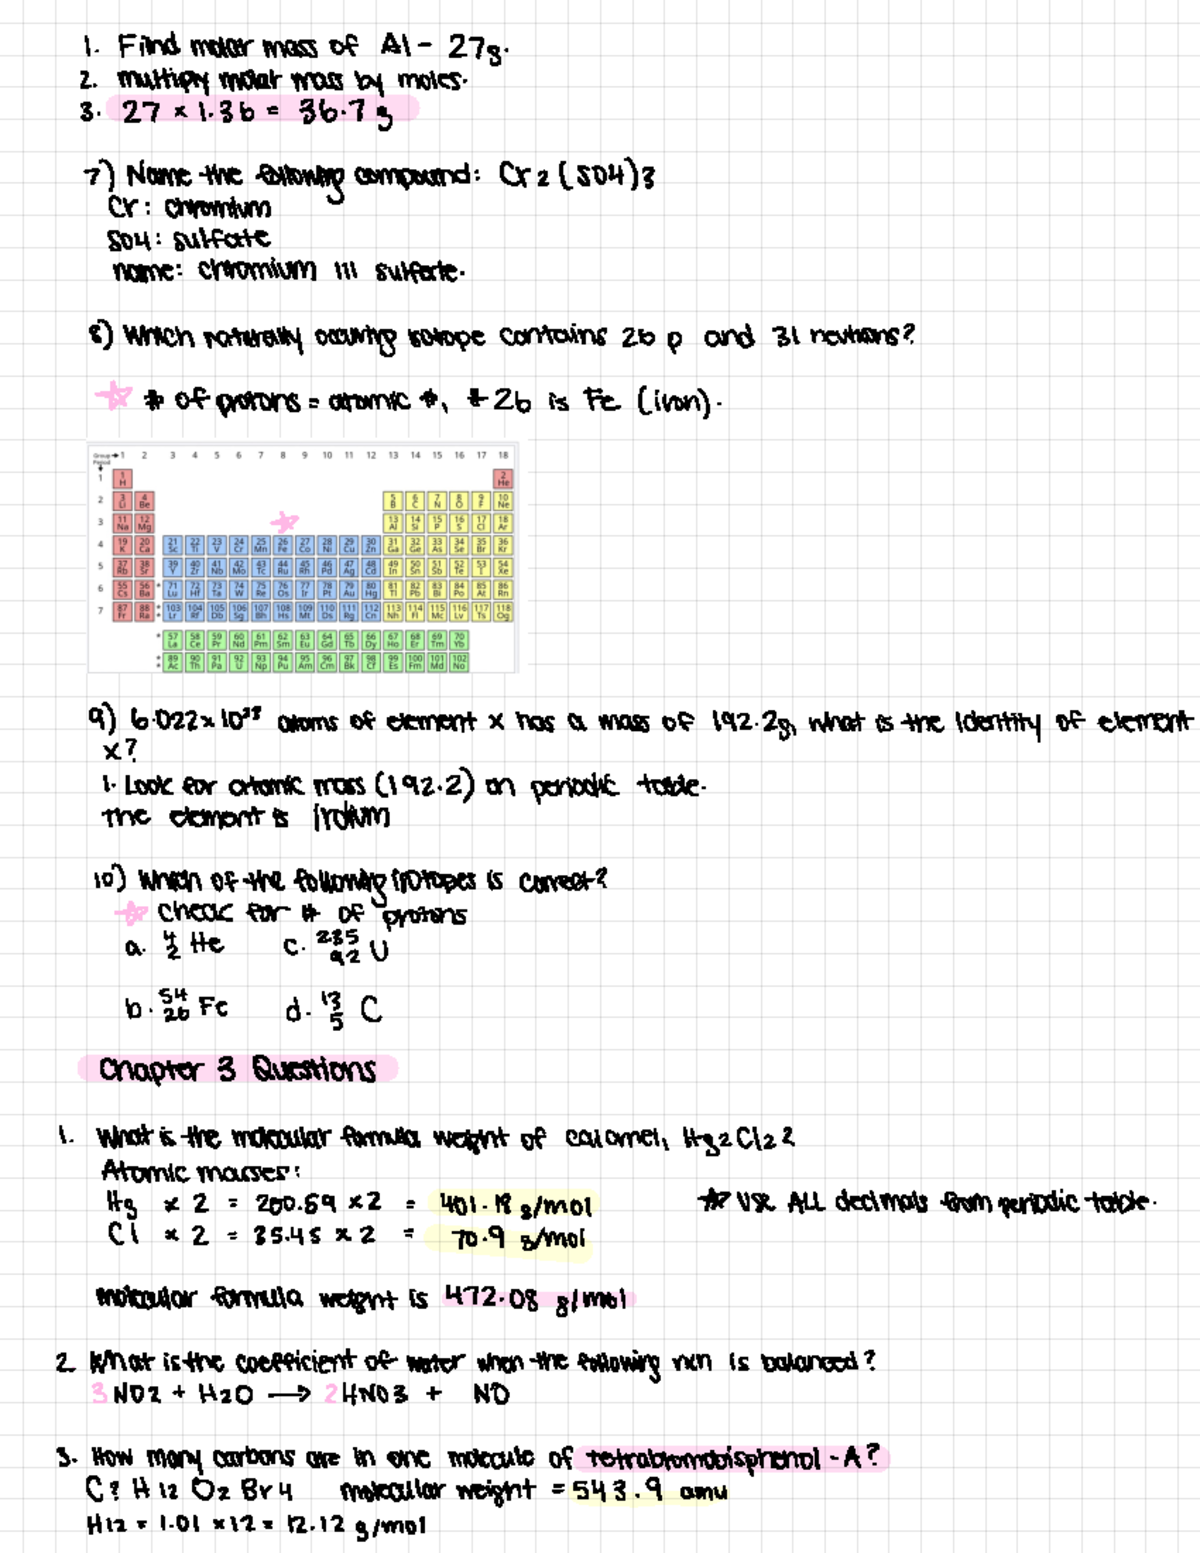 1. Find molar mass of Al - 27g.
2. multiply molar mass by moles.
3. 27 x 1.36 = 36.7 g
7) Name the following compound: Cr2(SO4)3
Cr: chromium
SO4: sulfate
name: chromium III sulfate.
8) Which naturally occuring isotope contains 26 p and 31 neutrons?
# of protons = atomic #, # 26 is Fe (iron).
Group → 1 2 3 4 5 6 7 8 9 10 11 12 13 14 15 16 17 18
Period
1 1 2
H He
2 3 4 5 6 7 8 9 10
Li Be B C N O F Ne
3 11 12 13 14 15 16 17 18
Na Mg Al Si P S Cl Ar
4 19 20 21 22 23 24 25 26 27 28 29 30 31 32 33 34 35 36
K Ca Sc Ti V Cr Mn Fe Co Ni Cu Zn Ga Ge As Se Br Kr
5 37 38 39 40 41 42 43 44 45 46 47 48 49 50 51 52 53 54
Rb Sr Y Zr Nb Mo Tc Ru Rh Pd Ag Cd In Sn Sb Te I Xe
6 55 56 * 71 72 73 74 75 76 77 78 79 80 81 82 83 84 85 86
Cs Ba Lu Hf Ta W Re Os Ir Pt Au Hg Tl Pb Bi Po At Rn
7 87 88 * 103 104 105 106 107 108 109 110 111 112 113 114 115 116 117 118
Fr Ra * Lr Rf Db Sg Bh Hs Mt Ds Rg Cn Nh Fl Mc Lv Ts Og
* 57 58 59 60 61 62 63 64 65 66 67 68 69 70
La Ce Pr Nd Pm Sm Eu Gd Tb Dy Ho Er Tm Yb
* 89 90 91 92 93 94 95 96 97 98 99 100 101 102
* Ac Th Pa U Np Pu Am Cm Bk Cf Es Fm Md No
9) 6.022 x 10²³ atoms of element x has a mass of 192.2g, what is the identity of element
x?
1. Look for atomic mass (192.2) on periodic table.
The element is Iridium
10) Which of the following isotopes is correct?
check for # of protons
a. 4 2 He c. 235 92 U
b. 54 26 Fe d. 13 5 C
Chapter 3 Questions
1. What is the molecular formula weight of calomel, Hg2Cl2?
Atomic masses:
Hg x 2 = 200.59 x 2 = 401.18 g/mol ☆ USE ALL decimals from periodic table.
Cl x 2 = 35.45 x 2 = 70.9 g/mol
molecular formula weight is 472.08 g/mol
2. What is the coefficient of water when the following rxn is balanced?
3NO2 + H2O → 2HNO3 + NO
3. How many carbons are in one molecule of tetrabromobisphenol - A?
C? H12 O2 Br4 molecular weight = 543.9 amu
H12 = 1.01 x 12 = 12.12 g/mol